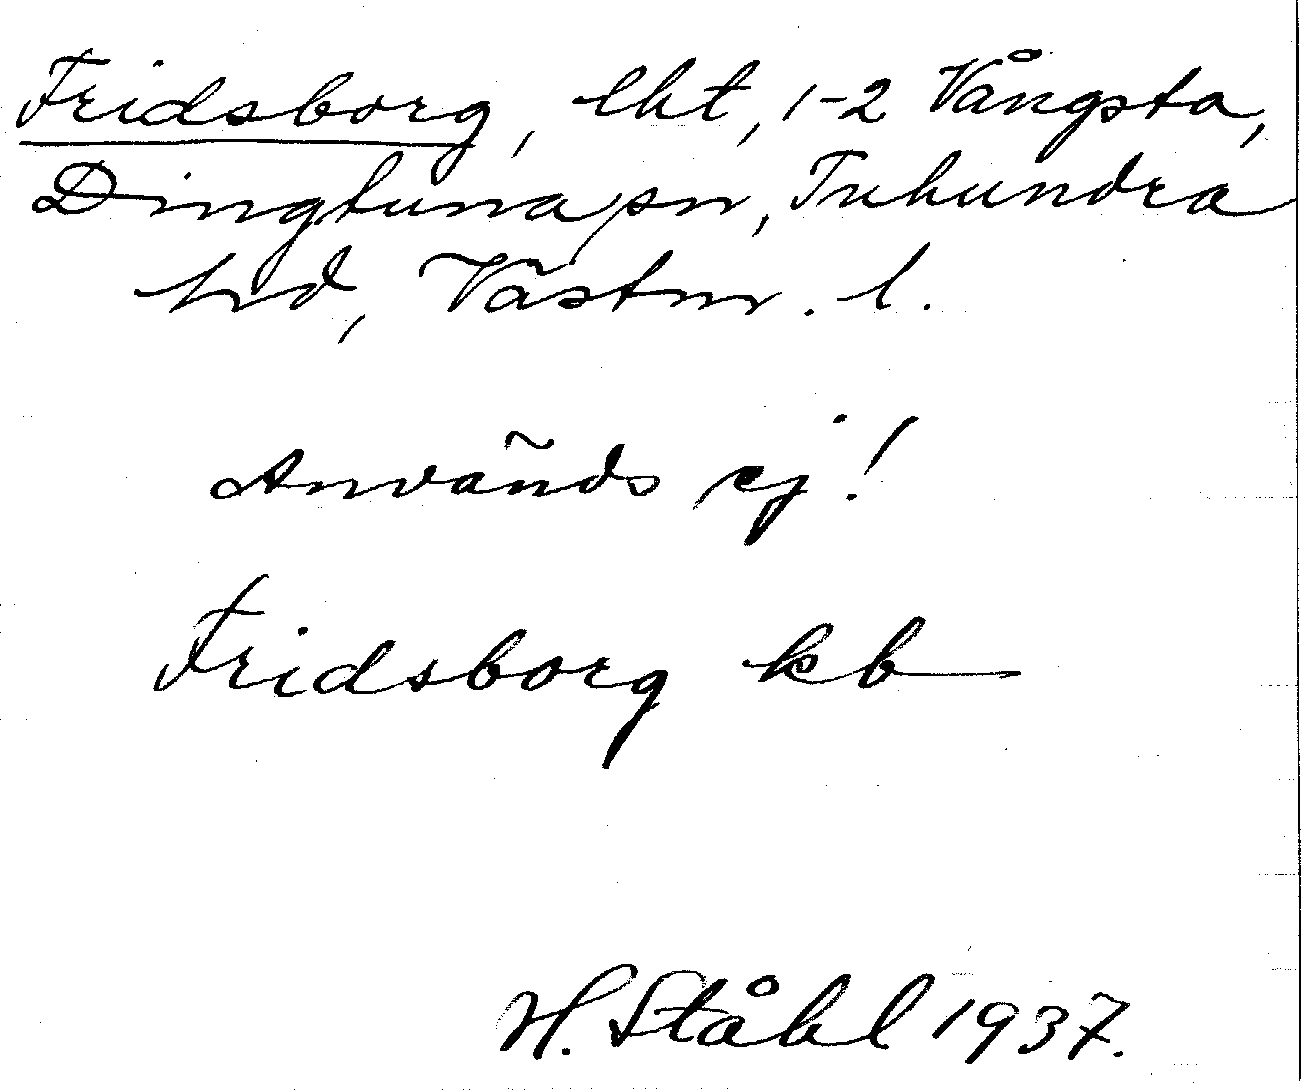 Fridsborg, lht, 1-2 Vångsta,
Dingtuna sn, Tuhundra
hd, Västm. l.
Används ej!
Fridsborg kb
H. Ståhl 1937.